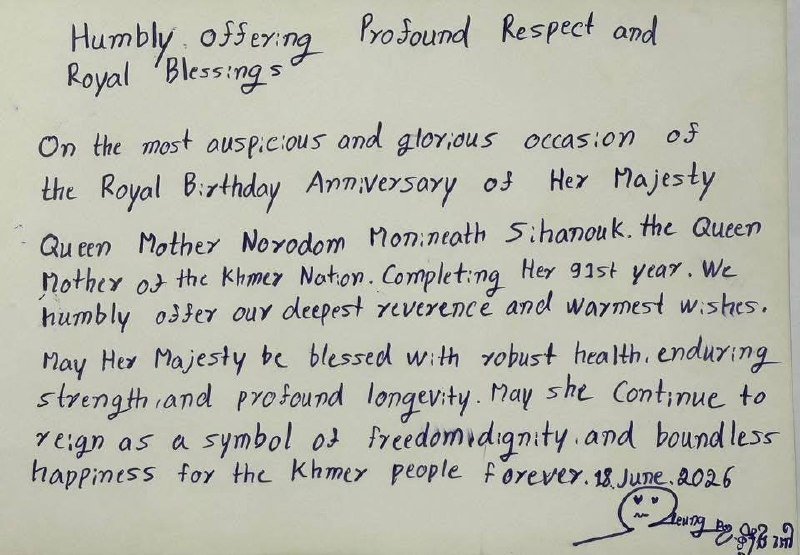 Humbly. offering Profound Respect and
Royal Blessings
On the most auspicious and glorious occasion of
the Royal Birthday Anniversary of Her Majesty
Queen Mother Norodom Monineath Sihanouk. the Queen
Mother of the Khmer Nation. Completing Her 91st year. We
humbly offer our deepest reverence and warmest wishes.
May Her Majesty be blessed with robust health, enduring
strength, and profound longevity. May she Continue to
reign as a symbol of freedom, dignity, and boundless
happiness for the Khmer people forever. 18. June. 2026